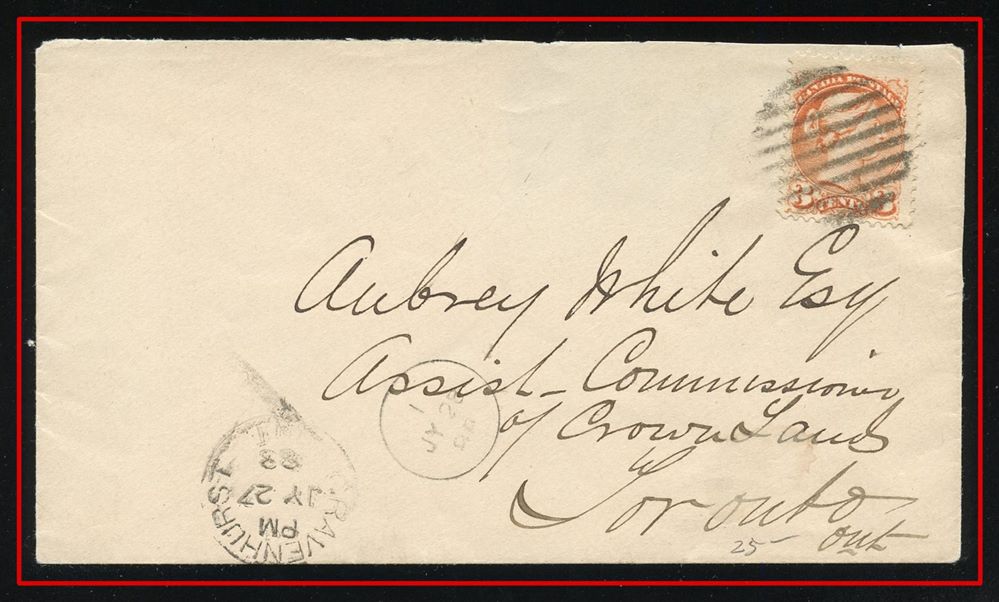 CANADA POSTAGE
3 CENTS 3
Aubrey White Esq
Assist- Commissioner
of Crown Lands
Toronto
Ont
25-
JY 2
GRAVENHURST
PM
JY 27
88